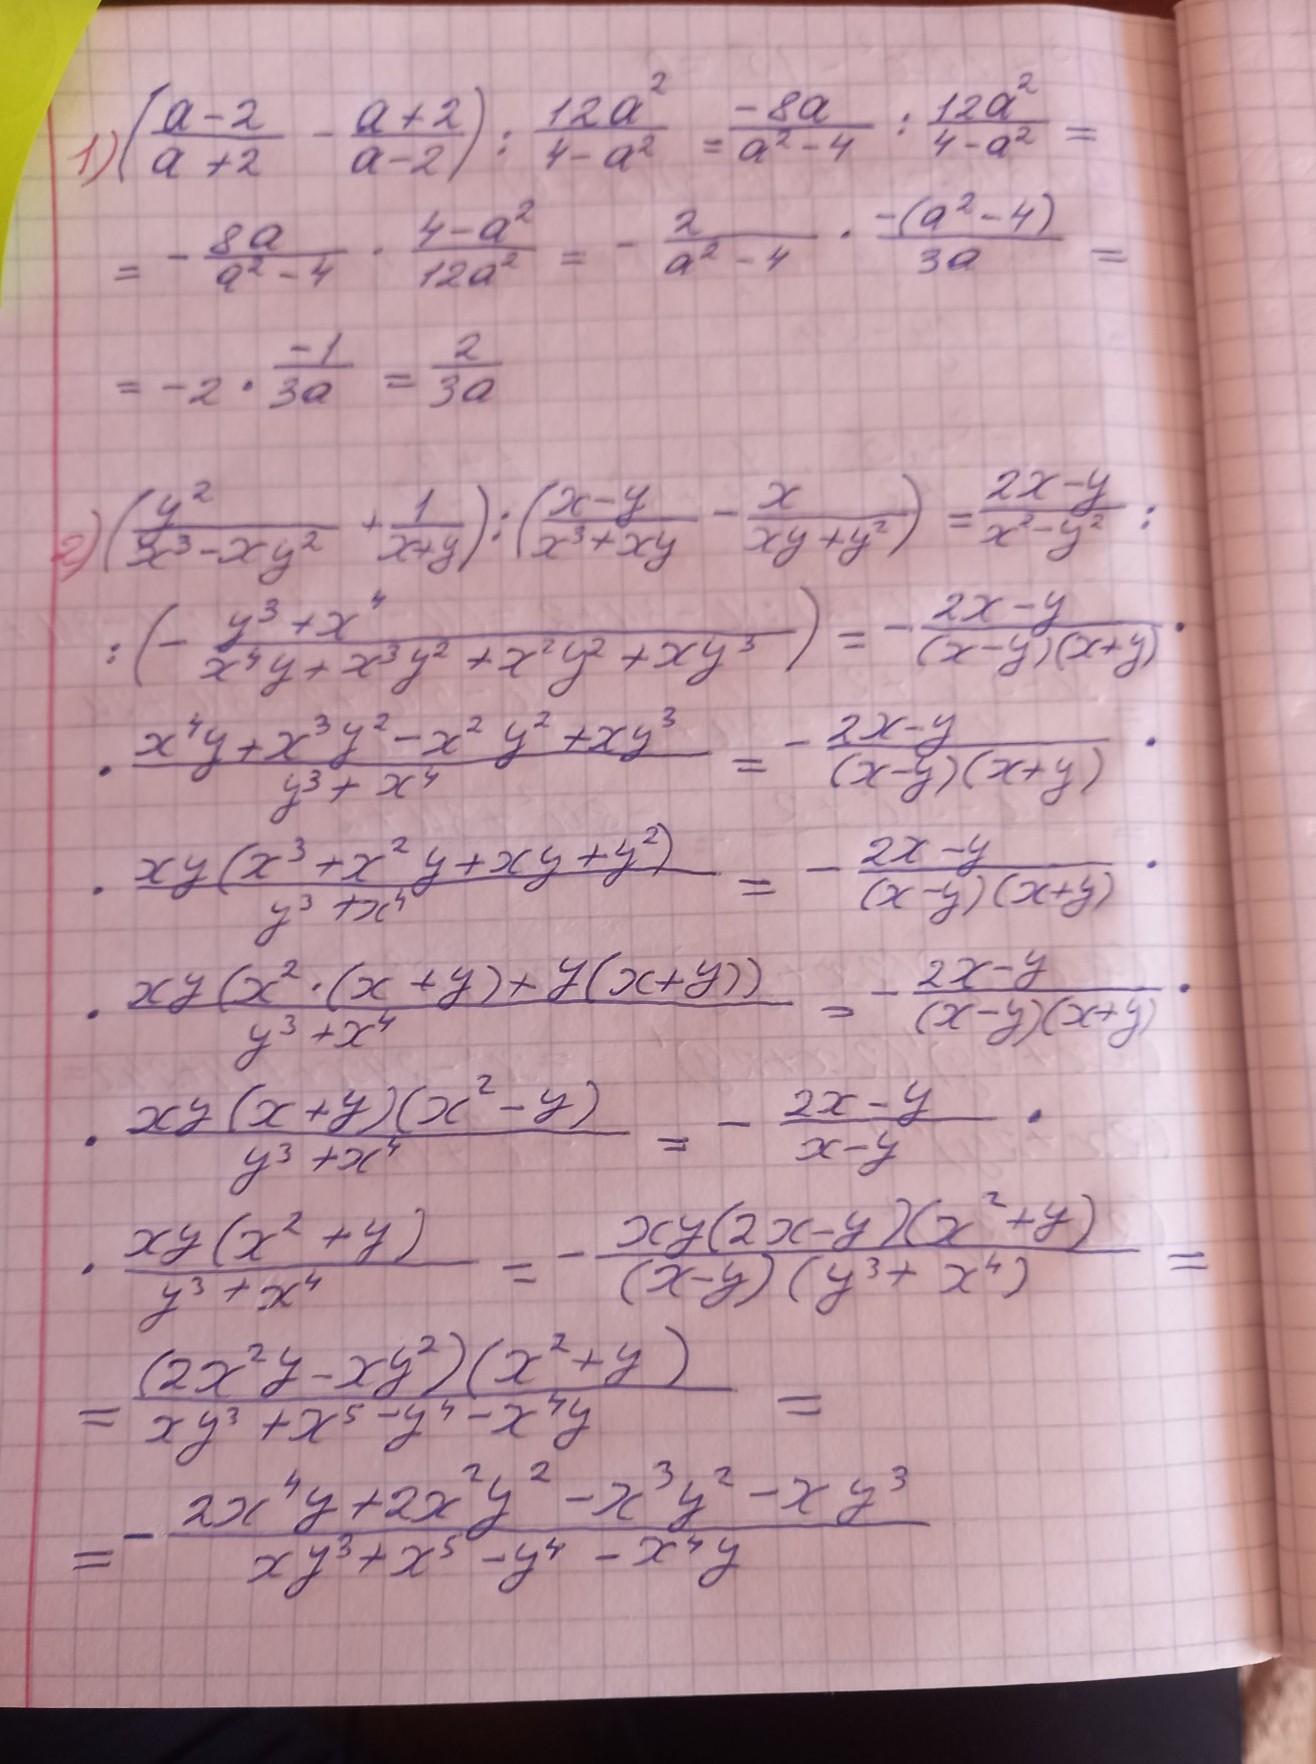 1) ((a-2)/(a+2) - (a+2)/(a-2)) : 12a²/(4-a²) = -8a/(a²-4) : 12a²/(4-a²) =
= - 8a/(a²-4) · (4-a²)/12a² = - 2/(a²-4) · -(a²-4)/3a =
= -2 · -1/3a = 2/3a
2) (y²/(x³-xy²) + 1/(x+y)) : ((x-y)/(x³+xy) - x/(xy+y²)) = (2x-y)/(x²-y²) :
: (- (y³+x⁴)/(x⁴y+x³y²+x²y²+xy³)) = - (2x-y)/((x-y)(x+y)) ·
· (x⁴y+x³y²-x²y²+xy³)/(y³+x⁴) = - (2x-y)/((x-y)(x+y)) ·
· xy(x³+x²y+xy+y²)/(y³+x⁴) = - (2x-y)/((x-y)(x+y)) ·
· xy(x²·(x+y)+y(x+y))/(y³+x⁴) = - (2x-y)/((x-y)(x+y)) ·
· xy(x+y)(x²-y)/(y³+x⁴) = - (2x-y)/(x-y) ·
· xy(x²+y)/(y³+x⁴) = - xy(2x-y)(x²+y)/((x-y)(y³+x⁴)) =
= (2x²y-xy²)(x²+y)/(xy³+x⁵-y⁴-x⁴y) =
= - (2x⁴y+2x²y²-x³y²-xy³)/(xy³+x⁵-y⁴-x⁴y)